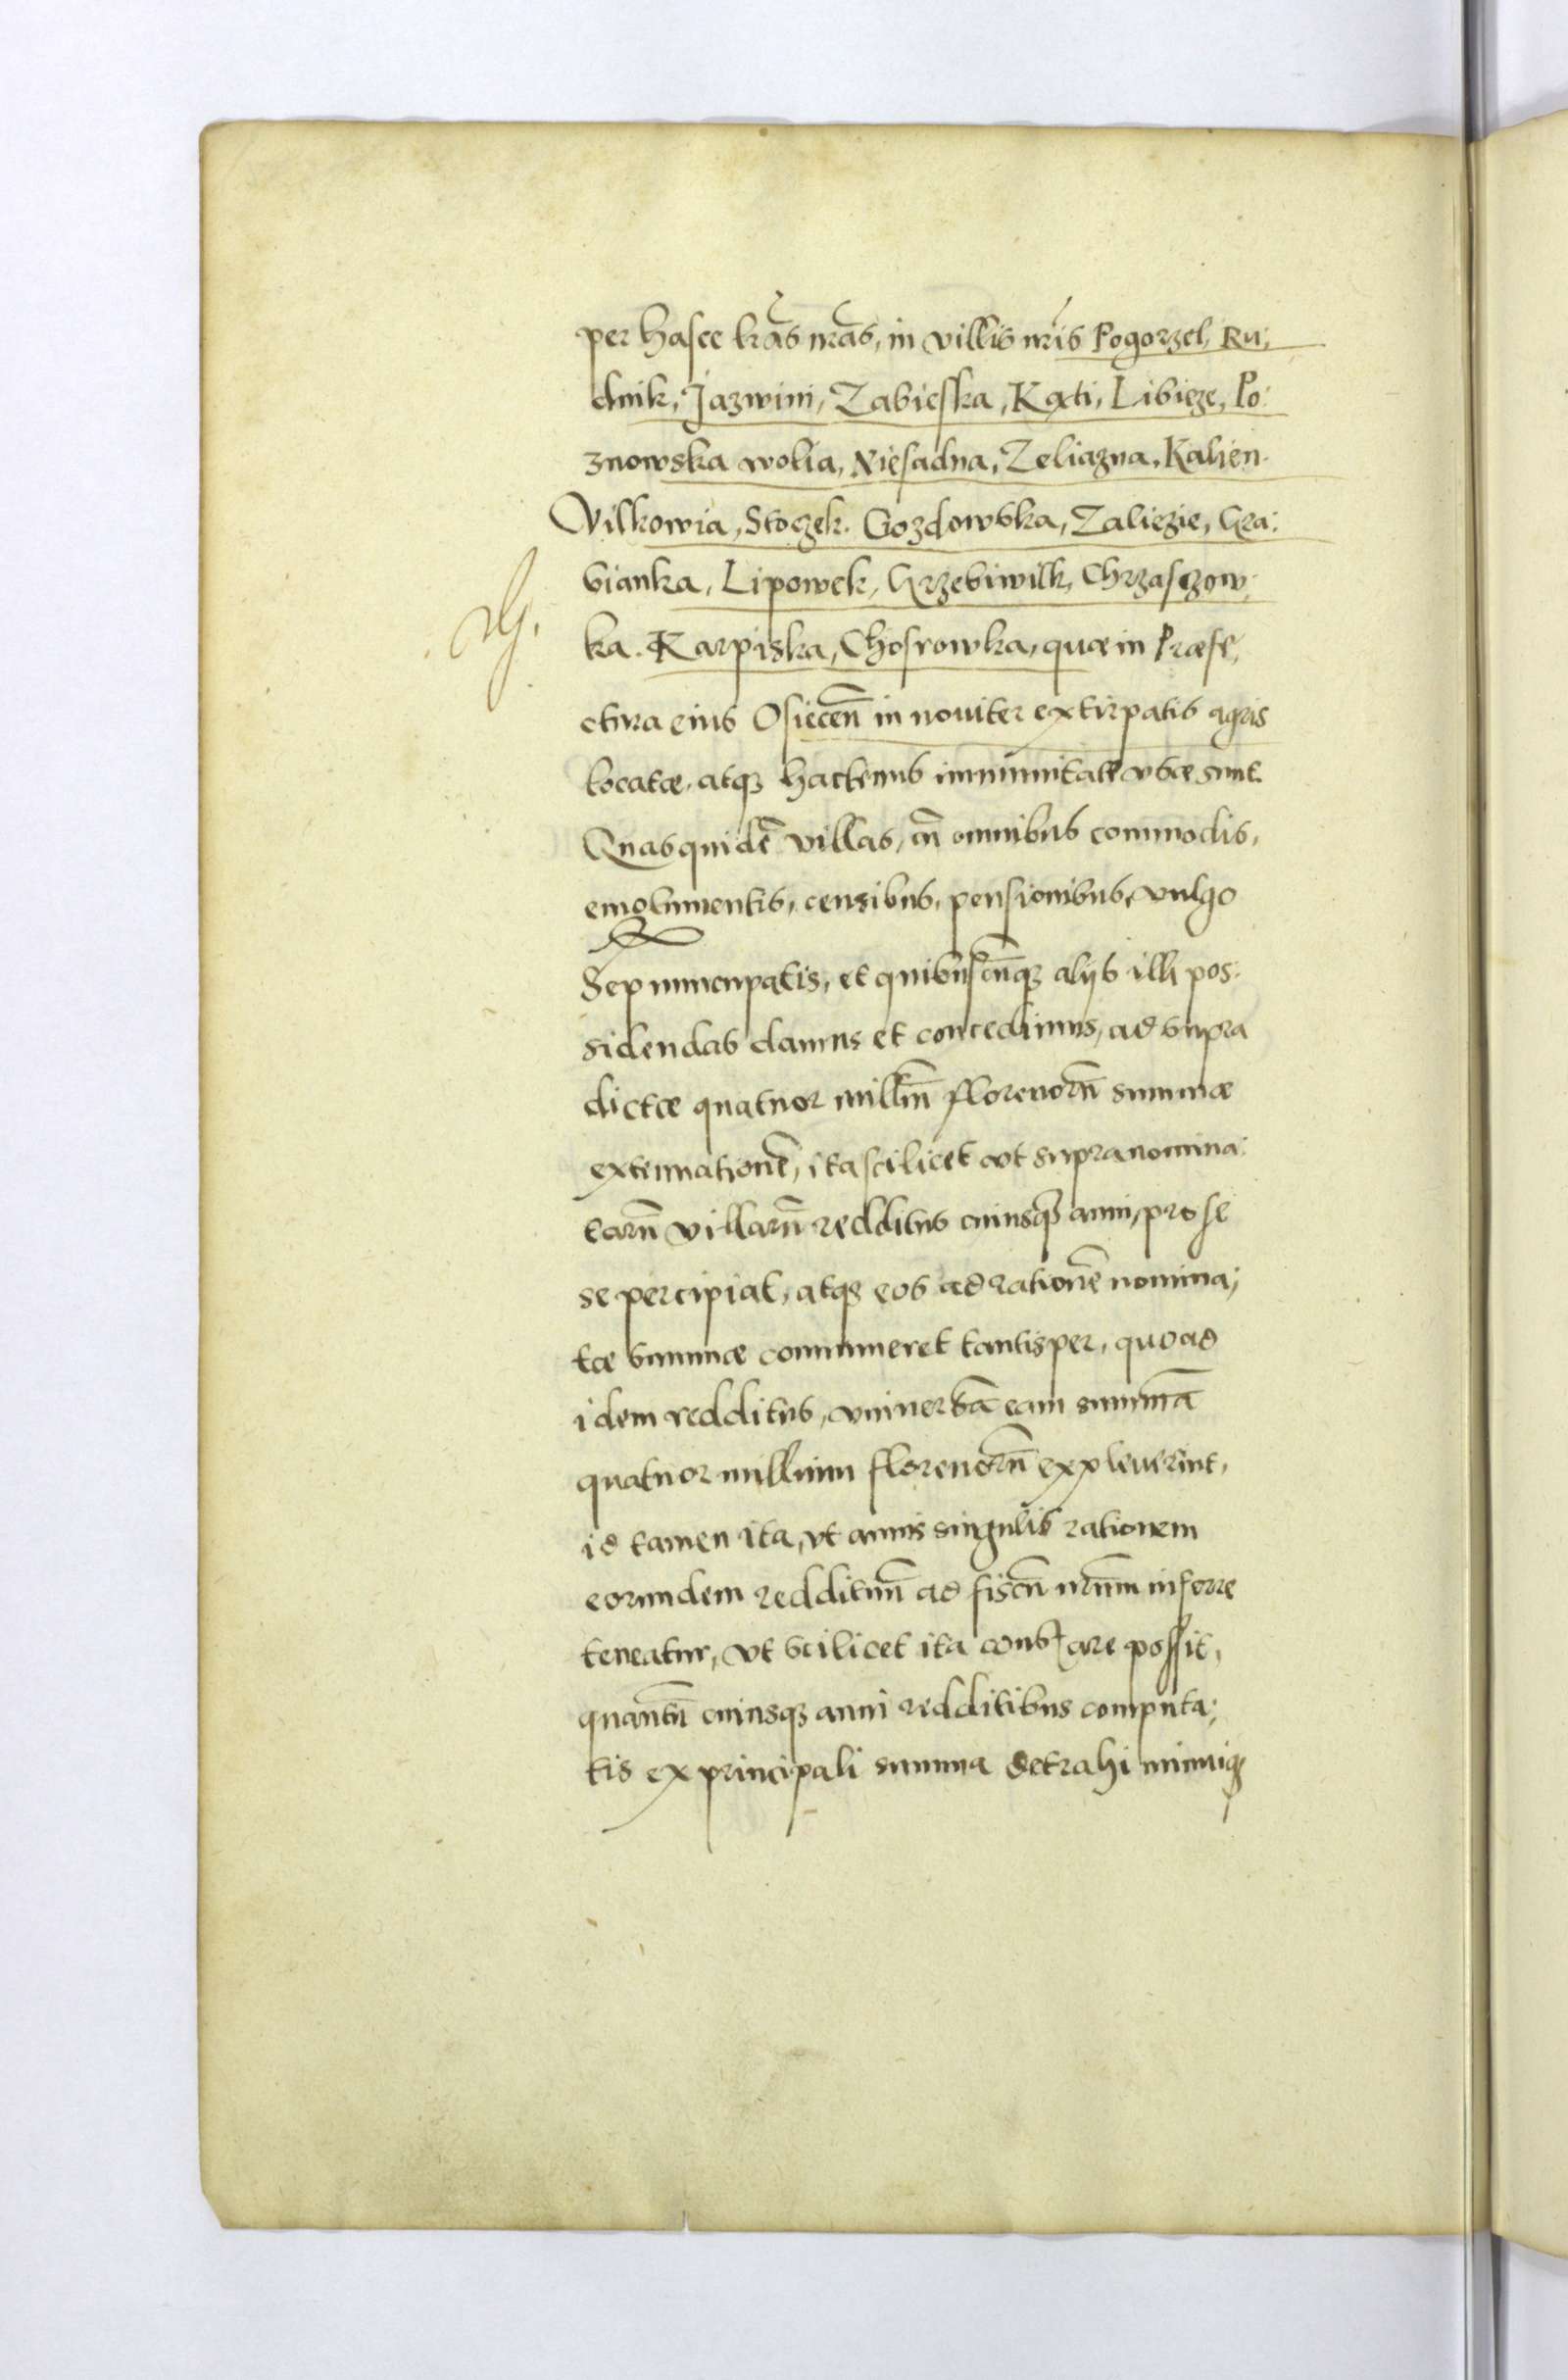 per hasce lras nras, in villis nris Pogorzel, Ru:
dnik, Jazwini, Zabieska, Kąti, Libieze, Po:
znowska wolia, Niesadna, Zeliazna, Kalien.
Vilkowia, Stoczek. Gozdowska, Zaliezie, Gra:
bianka, Lipowek, Grzebiwilk, Chrzaszow,
ka. Karpiska, Chosrowka, quæ in Præfe,
ctura eius Osiecen̄ in nouiter extirpatis agris
locatæ, atq₃ hactenus immunitate vsæ sunt.
Quasquidē villas, cū omnibus commodis,
emolumentis, censibus, pensionibus, vulgo
Sep nuncupatis, et quibuscūq₃ alijs illi pos:
sidendas damus et concedimus, ad supra
dictæ quatuor milliū florenorū summæ
extenuationē, ita scilicet vt supranomina:
tarū villarū redditus cuiusq₃ anni, pro se
se percipiat, atq₃ eos ad rationē nomina;
tæ summæ connumeret tantisper, quoad
idem redditus, vniuersā eam summā
quatuor millium florenorū expleuerint,
id tamen ita, vt annis singulis rationem
eorundem reddituū ad fiscū nrūm inferre
teneatur, vt scilicet ita constare possit,
quantū cuiusq₃ anni redditibus computa;
tis ex principali summa detrahi minuiq₃